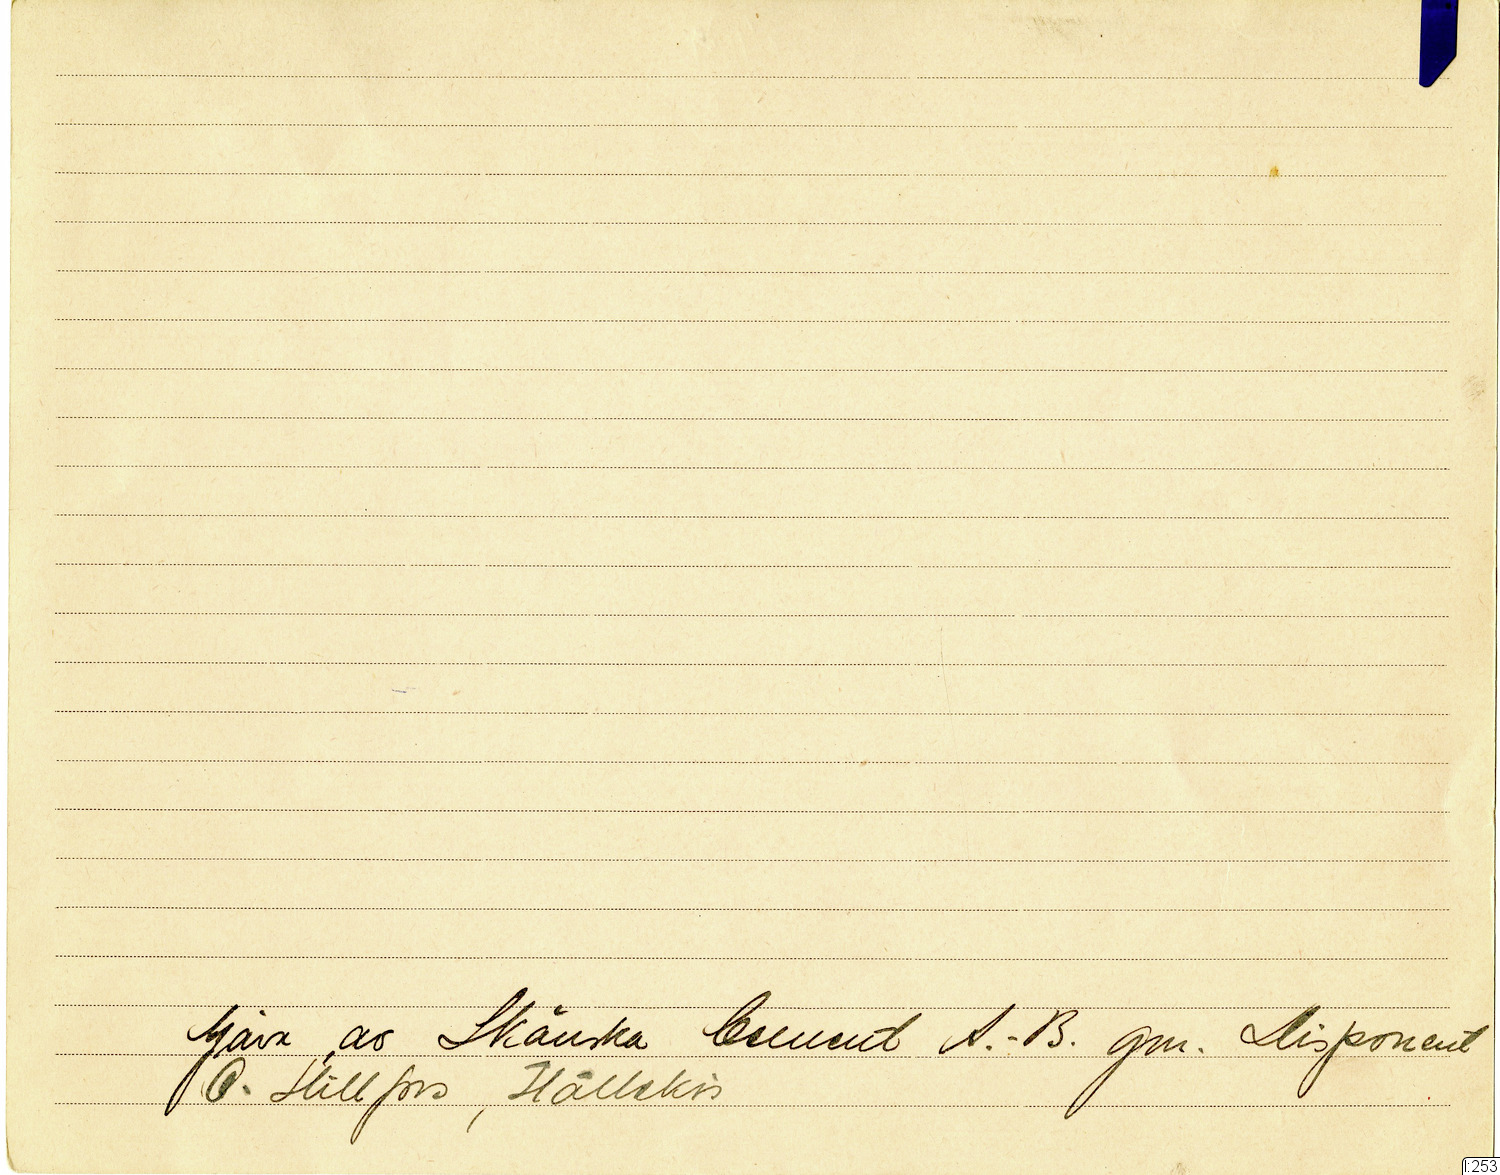 Gåva av Skånska Cement A.-B. gm. Disponent
O. Hillfors, Hällekis
:253